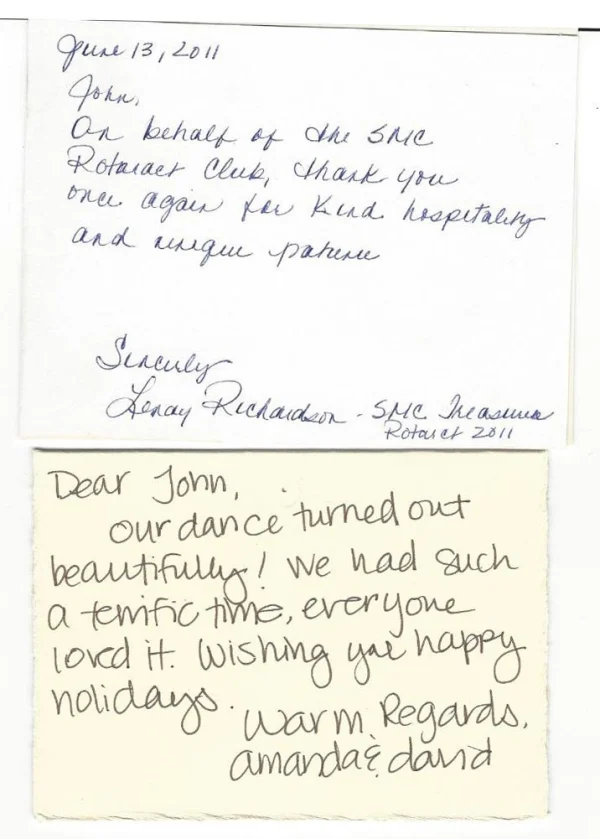 June 13, 2011
John,
On behalf of the SMC
Rotaract Club, thank you
once again for kind hospitality
and unique patience
Sincerely
Lenay Richardson - SMC Treasurer
Rotaract 2011
Dear John,
our dance turned out
beautifully! We had such
a terrific time, everyone
loved it. Wishing you happy
holidays.
Warm Regards,
amanda & david